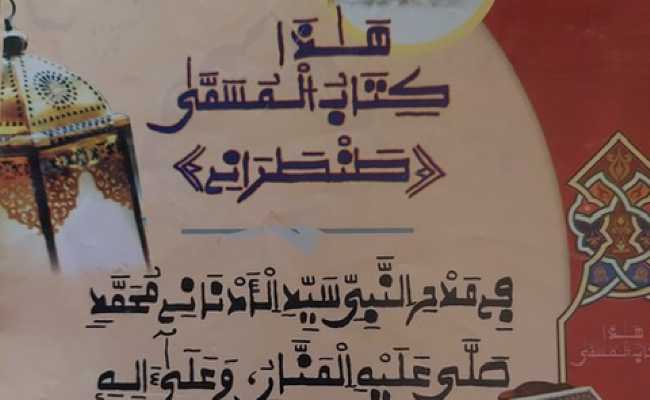 هَذَا
كِتَابُ الْمُسَمَّى
《طَنْطَرَانِي》
فِي مَدْحِ النَّبِيِّ سَيِّدِ الْأَدْنَانِي مُحَمَّدٍ
صَلَّى عَلَيْهِ الْمَنَّانُ، وَعَلَى آلِهِ
هَذَا
كِتَابُ الْمُسَمَّى